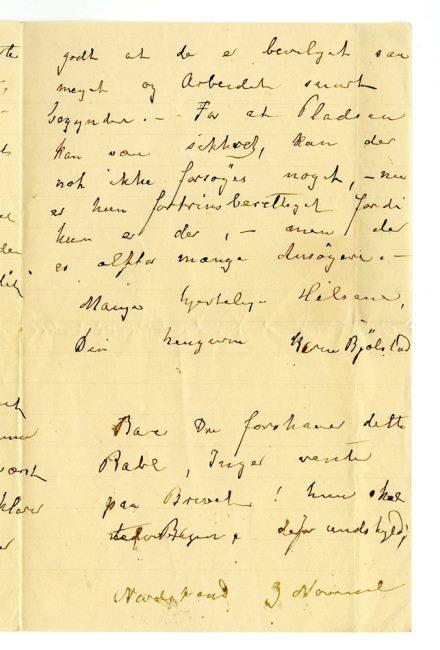 godt at de er bevilget saa
meget og Arbeidet snart
begynder. - For at Pladsen
kan være sikkret, kan der
nok ikke forsøges noget, - nu
er hun fortrinsberettiget fordi
hun er der, - men der
er altfor mange Ansøgere. -
Mange hjertelige Hilsener,
Din hengivne Bjølstad
Bare Du forstaaer dette
Rabl, Inger vente
paa Brevet! hun skal
undskyld,
Nordstrand 3 November